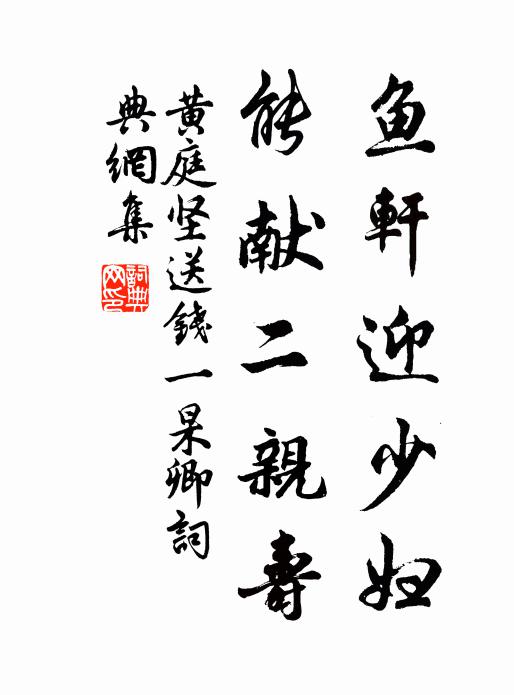 鱼軒迎少妇
能献二親壽
黄庭坚送錢一杲卿詞
典網集
詞典网印